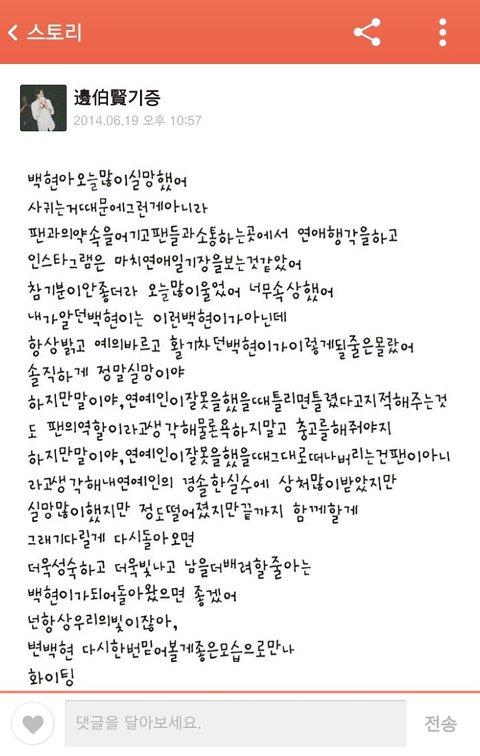 스토리
邊伯賢기증
2014.06.19 오후 10:57
백현아오늘많이실망했어
사귀는거때문에그런게아니라
팬과의약속을어기고팬들과소통하는곳에서 연애행각을하고
인스타그램은 마치연애일기장을보는것같았어
참기분이안좋더라 오늘많이울었어 너무속상했어
내가알던백현이는 이런백현이가아닌데
항상밝고 예의바르고 활기차던백현이가이렇게될줄은몰랐어
솔직하게 정말실망이야
하지만말이야,연예인이잘못을했을때틀리면틀렸다고지적해주는것
도 팬의역할이라고생각해물론욕하지말고 충고를해줘야지
하지만말이야,연예인이잘못을했을때그대로떠나버리는건팬이아니
라고생각해내연예인의 경솔한실수에 상처많이받았지만
실망많이했지만 정도떨어졌지만끝까지 함께할게
그래기다릴게 다시돌아오면
더욱성숙하고 더욱빛나고 남을더배려할줄아는
백현이가되어돌아왔으면 좋겠어
넌항상우리의빛이잖아,
변백현 다시한번믿어볼게좋은모습으로만나
화이팅
댓글을 달아보세요.
전송